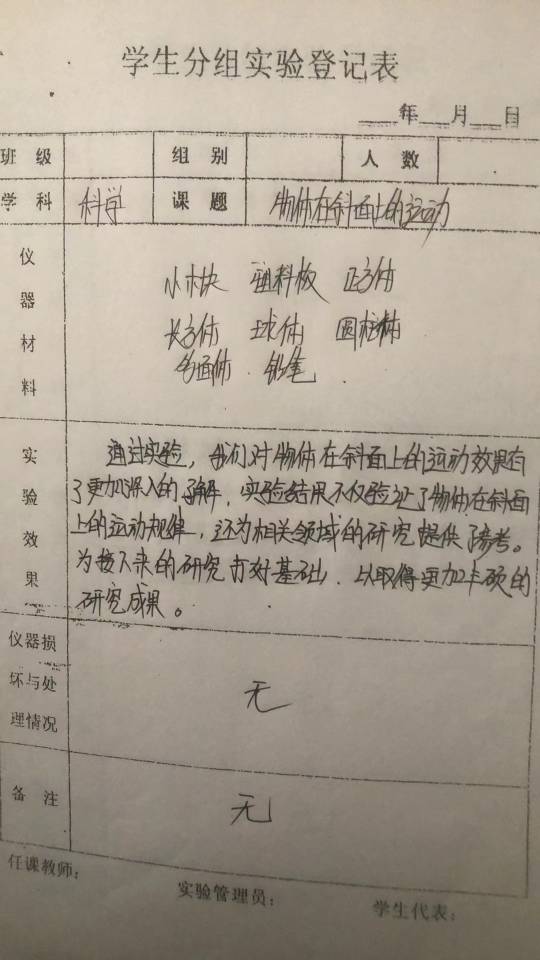 学生分组实验登记表
___年___月___日
班级 组别 人数
学科 科学 课题 物体在斜面上的运动
仪器材料
小木块 塑料板 正方体
长方体 球体 圆柱体
多面体 铅笔
实验效果
通过实验，我们对物体在斜面上的运动效果有
了更加深入的了解，实验结果不仅验证了物体在斜面
上的运动规律，还为相关领域的研究提供了参考。
为接下来的研究打好基础，以取得更加丰硕的
研究成果。
仪器损
坏与处
理情况
无
备注 无
任课教师： 实验管理员： 学生代表：